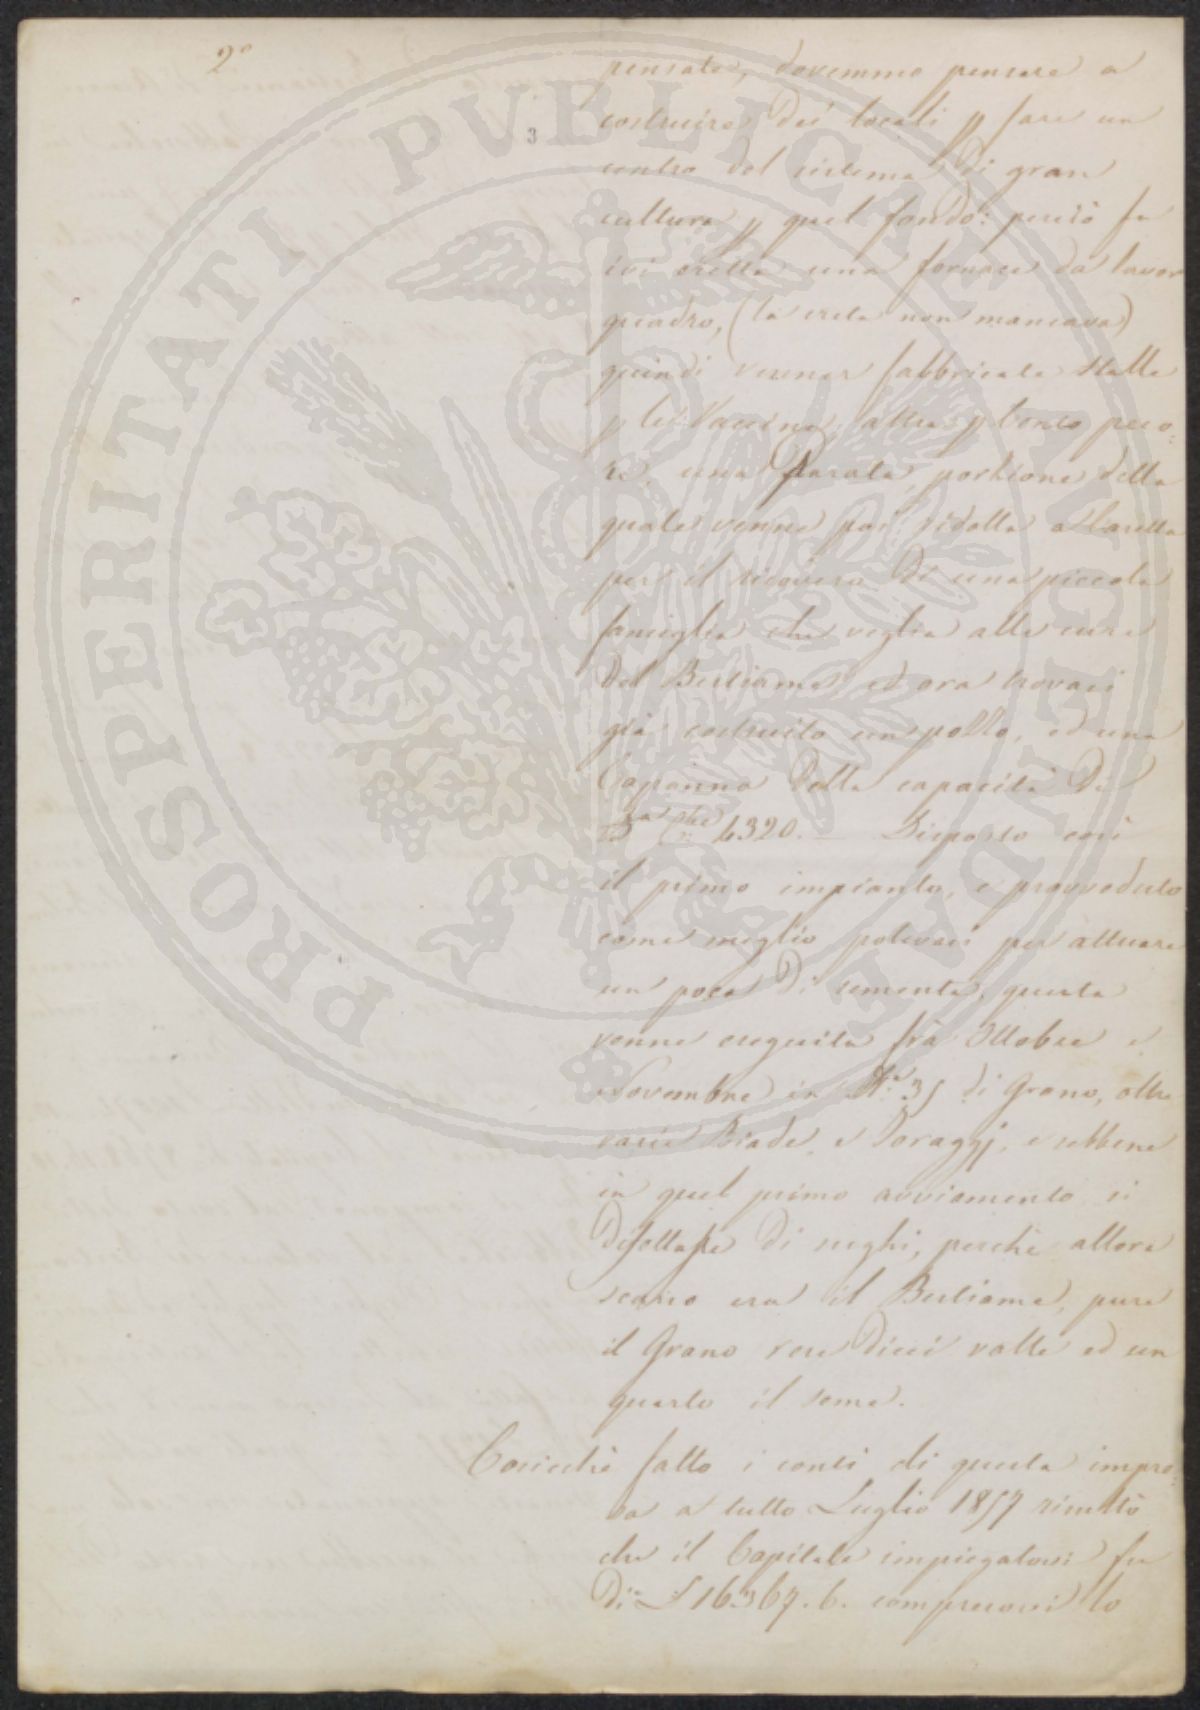 2°
pensate, dovemmo pensare a
costruire dei locali p fare un
centro del sistema di gran
cultura p quel fondo: perciò fu
ivi eretta una fornace da lavor
quadro, (la creta non mancava)
quindi venner fabbricate Stalle
p le Vaccine, altre p Cento peco:
re, una Parata, porzione della
quale venne poi ridotta a Casetta
per il ricovero di una piccola
famiglia che veglia alle cure
del Bestiame ed ora trovasi
già costruito un pozzo, ed una
Capanna della capacità di
4320. Disposto così
il primo impianto, e provveduto
come meglio potevasi per attuare
un poca di sementa, questa
venne eseguita frà Ottobre e
Novembre in St.a 35 di Grano, oltre
varie Biade e Foraggj, e sebbene
in quel primo avviamento si
difettasse di sughi, perchè allora
scarso era il Bestiame, pure
il Grano rese dieci volte ed un
quarto il seme.
Cosicchè fatto i conti di questa impre:
sa a tutto Luglio 1857 risultò
che il Capitale impiegatovi fu
di £ 16367.6. compresovi lo
3
PROSPERITATI PUBLICAE AUGENDAE